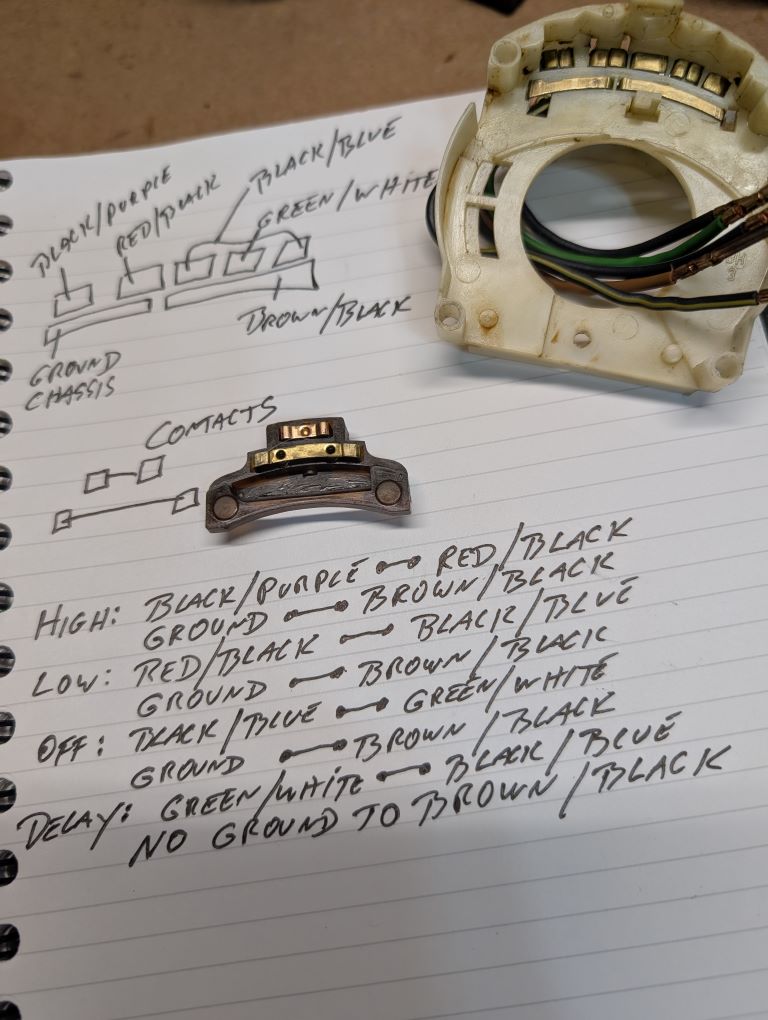 BLACK/PURPLE
RED/BLACK
BLACK/BLUE
GREEN/WHITE
BROWN/BLACK
GROUND
CHASSIS
CONTACTS
HIGH: BLACK/PURPLE RED/BLACK
GROUND BROWN/BLACK
LOW: RED/BLACK BLACK/BLUE
GROUND BROWN/BLACK
OFF: BLACK/BLUE GREEN/WHITE
GROUND BROWN/BLACK
DELAY: GREEN/WHITE BLACK/BLUE
NO GROUND TO BROWN/BLACK